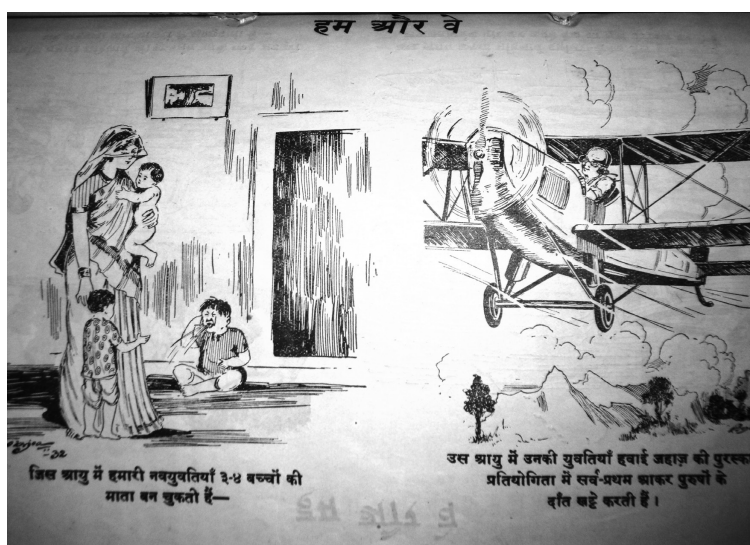 हम और वे
जिस आयु में हमारी नवयुवतियाँ ३-४ बच्चों की
माता बन चुकती हैं—
उस आयु में उनकी युवतियाँ हवाई जहाज़ की
प्रतियोगिता में सर्व-प्रथम आकर पुरुषों के
दाँत खट्टे करती हैं।